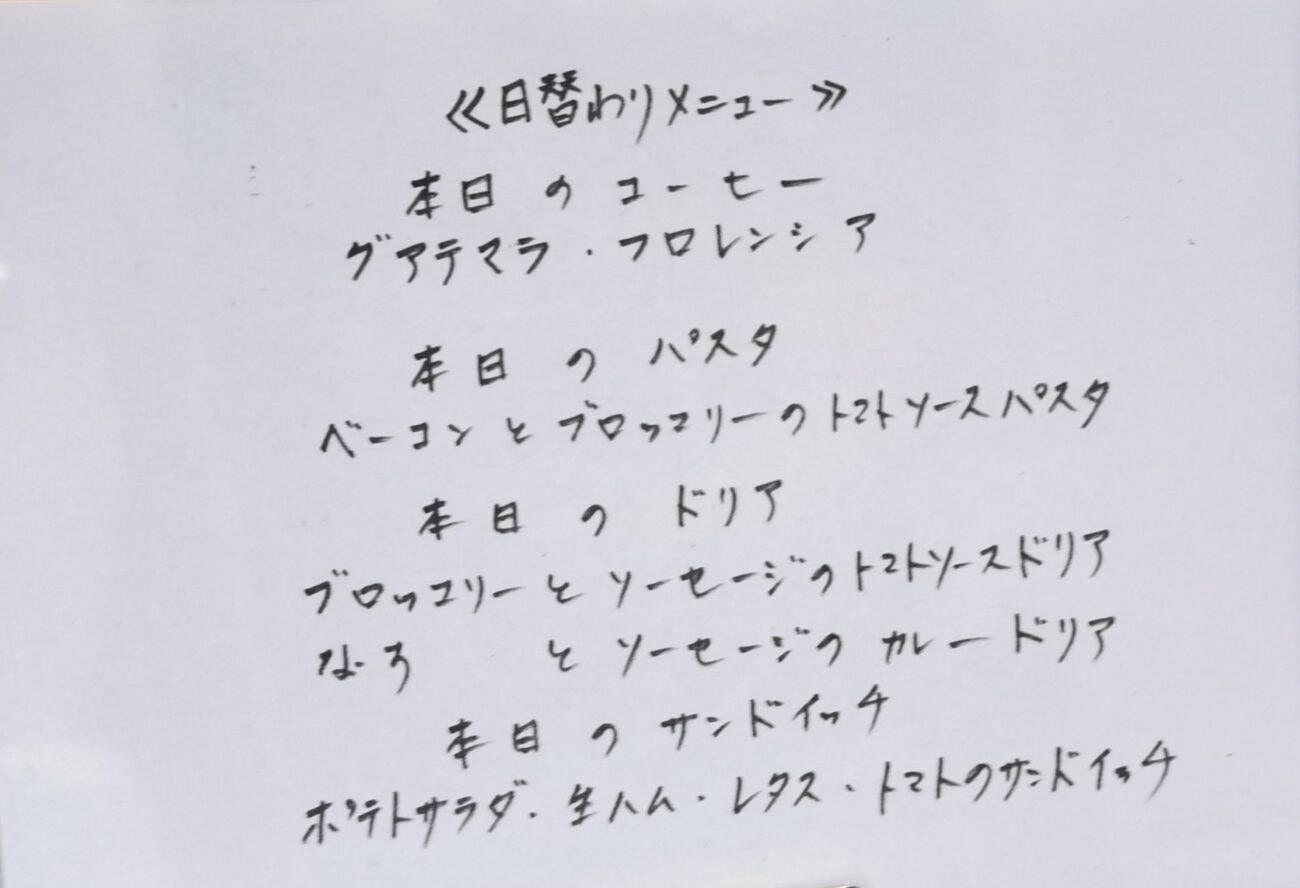 ≪日替わりメニュー≫
本日のコーヒー
グアテマラ・フロレンシア
本日のパスタ
ベーコンとブロッコリーのトマトソースパスタ
本日のドリア
ブロッコリーとソーセージのトマトソースドリア
なす とソーセージのカレードリア
本日のサンドイッチ
ポテトサラダ・生ハム・レタス・トマトのサンドイッチ